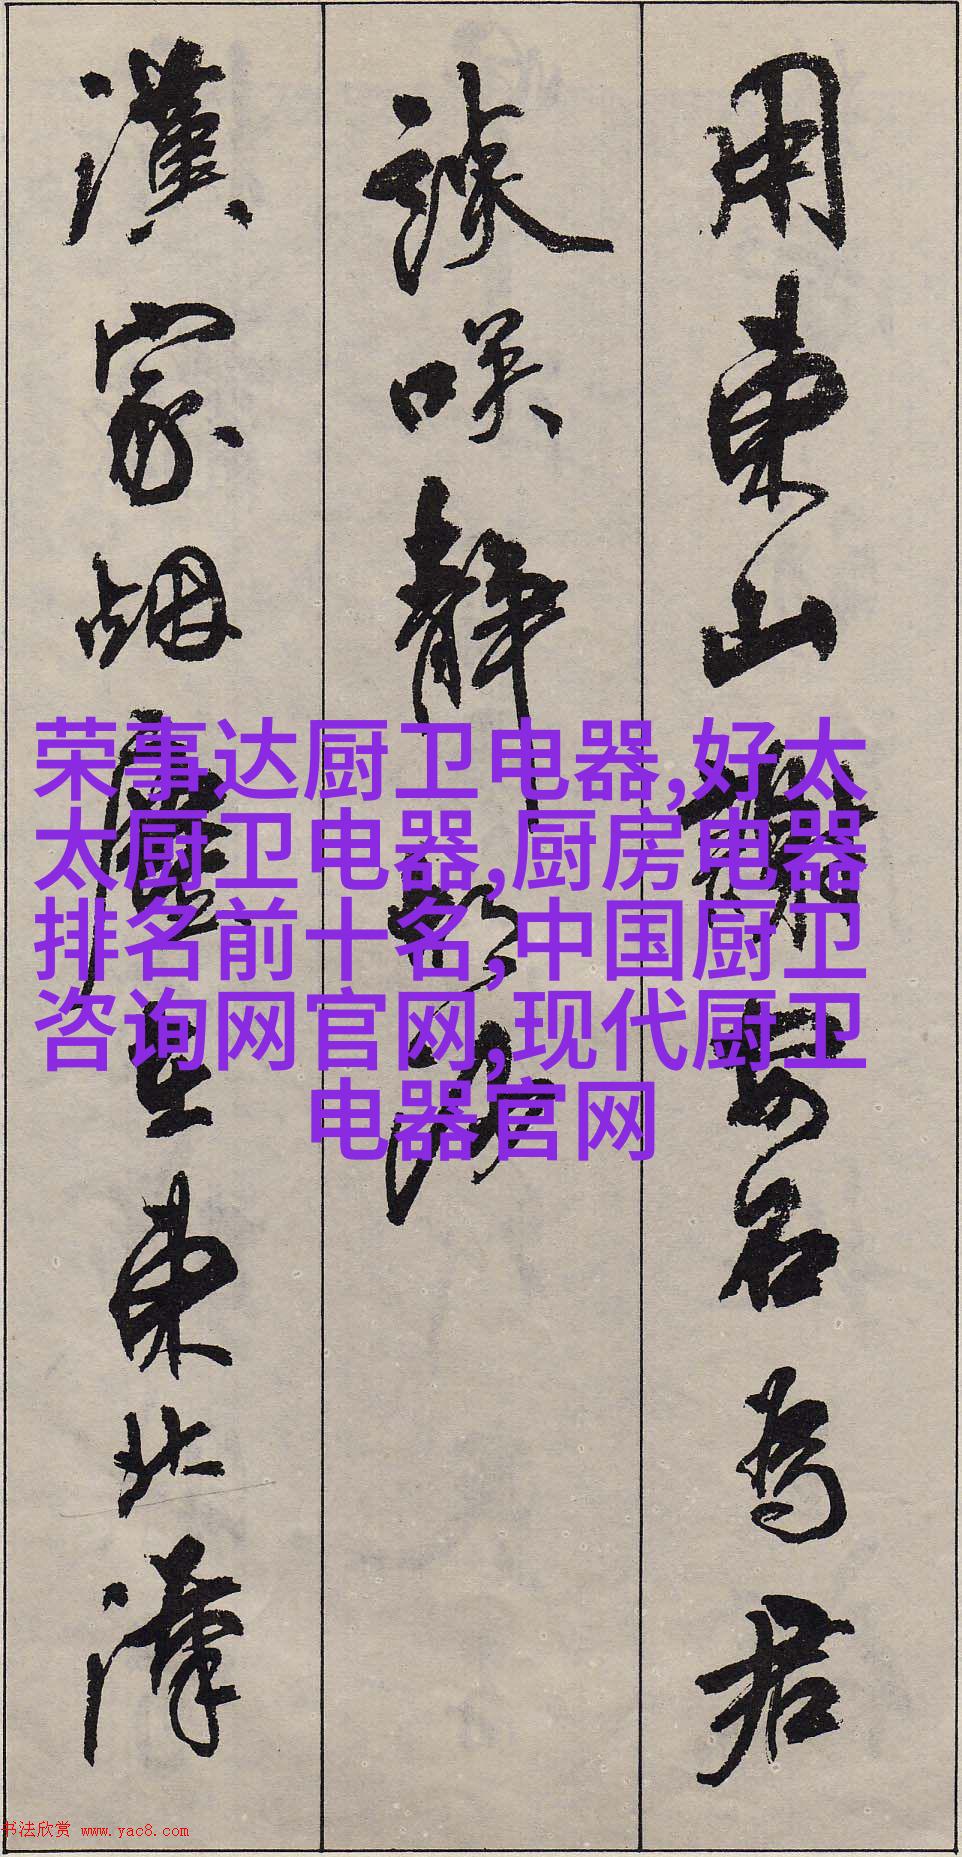 用東山謝安石為君
談咲靜胡沙
漢家烟塵在東北漢
荣事达厨卫电器,好太
太厨卫电器,厨房电器
排名前十名,中国厨卫
咨询网官网,现代厨卫
电器官网
书法欣赏 www.yac8.com